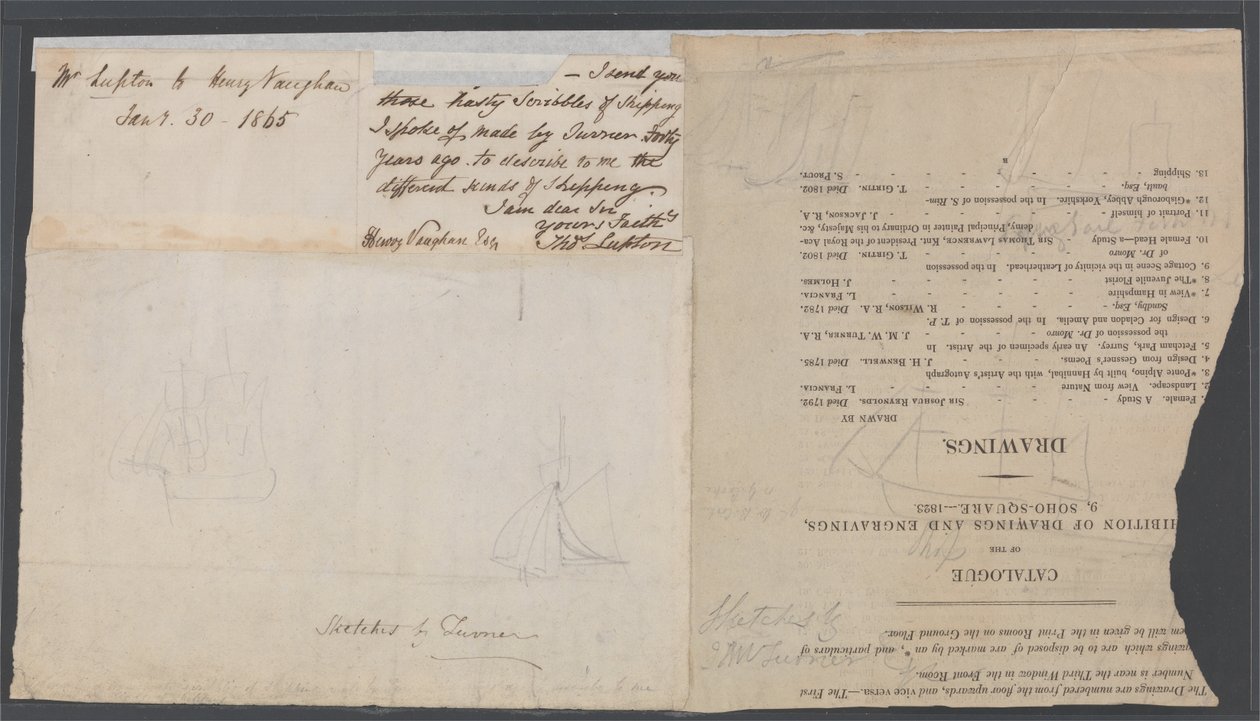 Mr Lupton to Henry Vaughan
Jany. 30 - 1865
— I send you
those hasty Scribbles of Shipping
I spoke of made by Turner Forty
Years ago. to describe to me the
different kinds of Shipping.
I am dear Sir
Yours Faithy
Henry Vaughan Esq
Thos Lupton
Sketches by Turner
The Drawings are numbered from the floor upwards, and vice versa.—The First
Number is near the Third Window in the Front Room.
which are to be disposed of are marked by an *, and particulars of
em will be given in the Print Rooms on the Ground Floor.
CATALOGUE
OF THE
HIBITION OF DRAWINGS AND ENGRAVINGS,
9, SOHO-SQUARE.—1823.
DRAWINGS.
DRAWN BY
1. Female. A Study - Sir Joshua Reynolds. Died 1792.
2. Landscape. View from Nature - L. Francia.
3. *Ponte Alpino, built by Hannibal, with the Artist's Autograph
4. Design from Gessner's Poems. - J. H. Benwell. Died 1785.
5. Fetcham Park, Surrey. An early specimen of the Artist. In
the possession of Dr. Monro - J. M. W. Turner, R.A.
6. Design for Celadon and Amelia. In the possession of T. P.
Sandby, Esq. - R. Wilson, R.A. Died 1782.
7. *View in Hampshire - L. Francia.
8. *The Juvenile Florist - J. Holmes.
9. Cottage Scene in the vicinity of Leatherhead. In the possession
of Dr. Monro - T. Girtin. Died 1802.
10. Female Head—a Study - Sir Thomas Lawrence, Knt. President of the Royal Aca-
demy, Principal Painter in Ordinary to his Majesty, &c.
11. Portrait of himself - J. Jackson, R.A.
12. *Gisborough Abbey, Yorkshire. In the possession of S. Rim-
bault, Esq. - T. Girtin. Died 1802.
13. Shipping - S. Prout.
B
Ship
Sketches by
J M W Turner